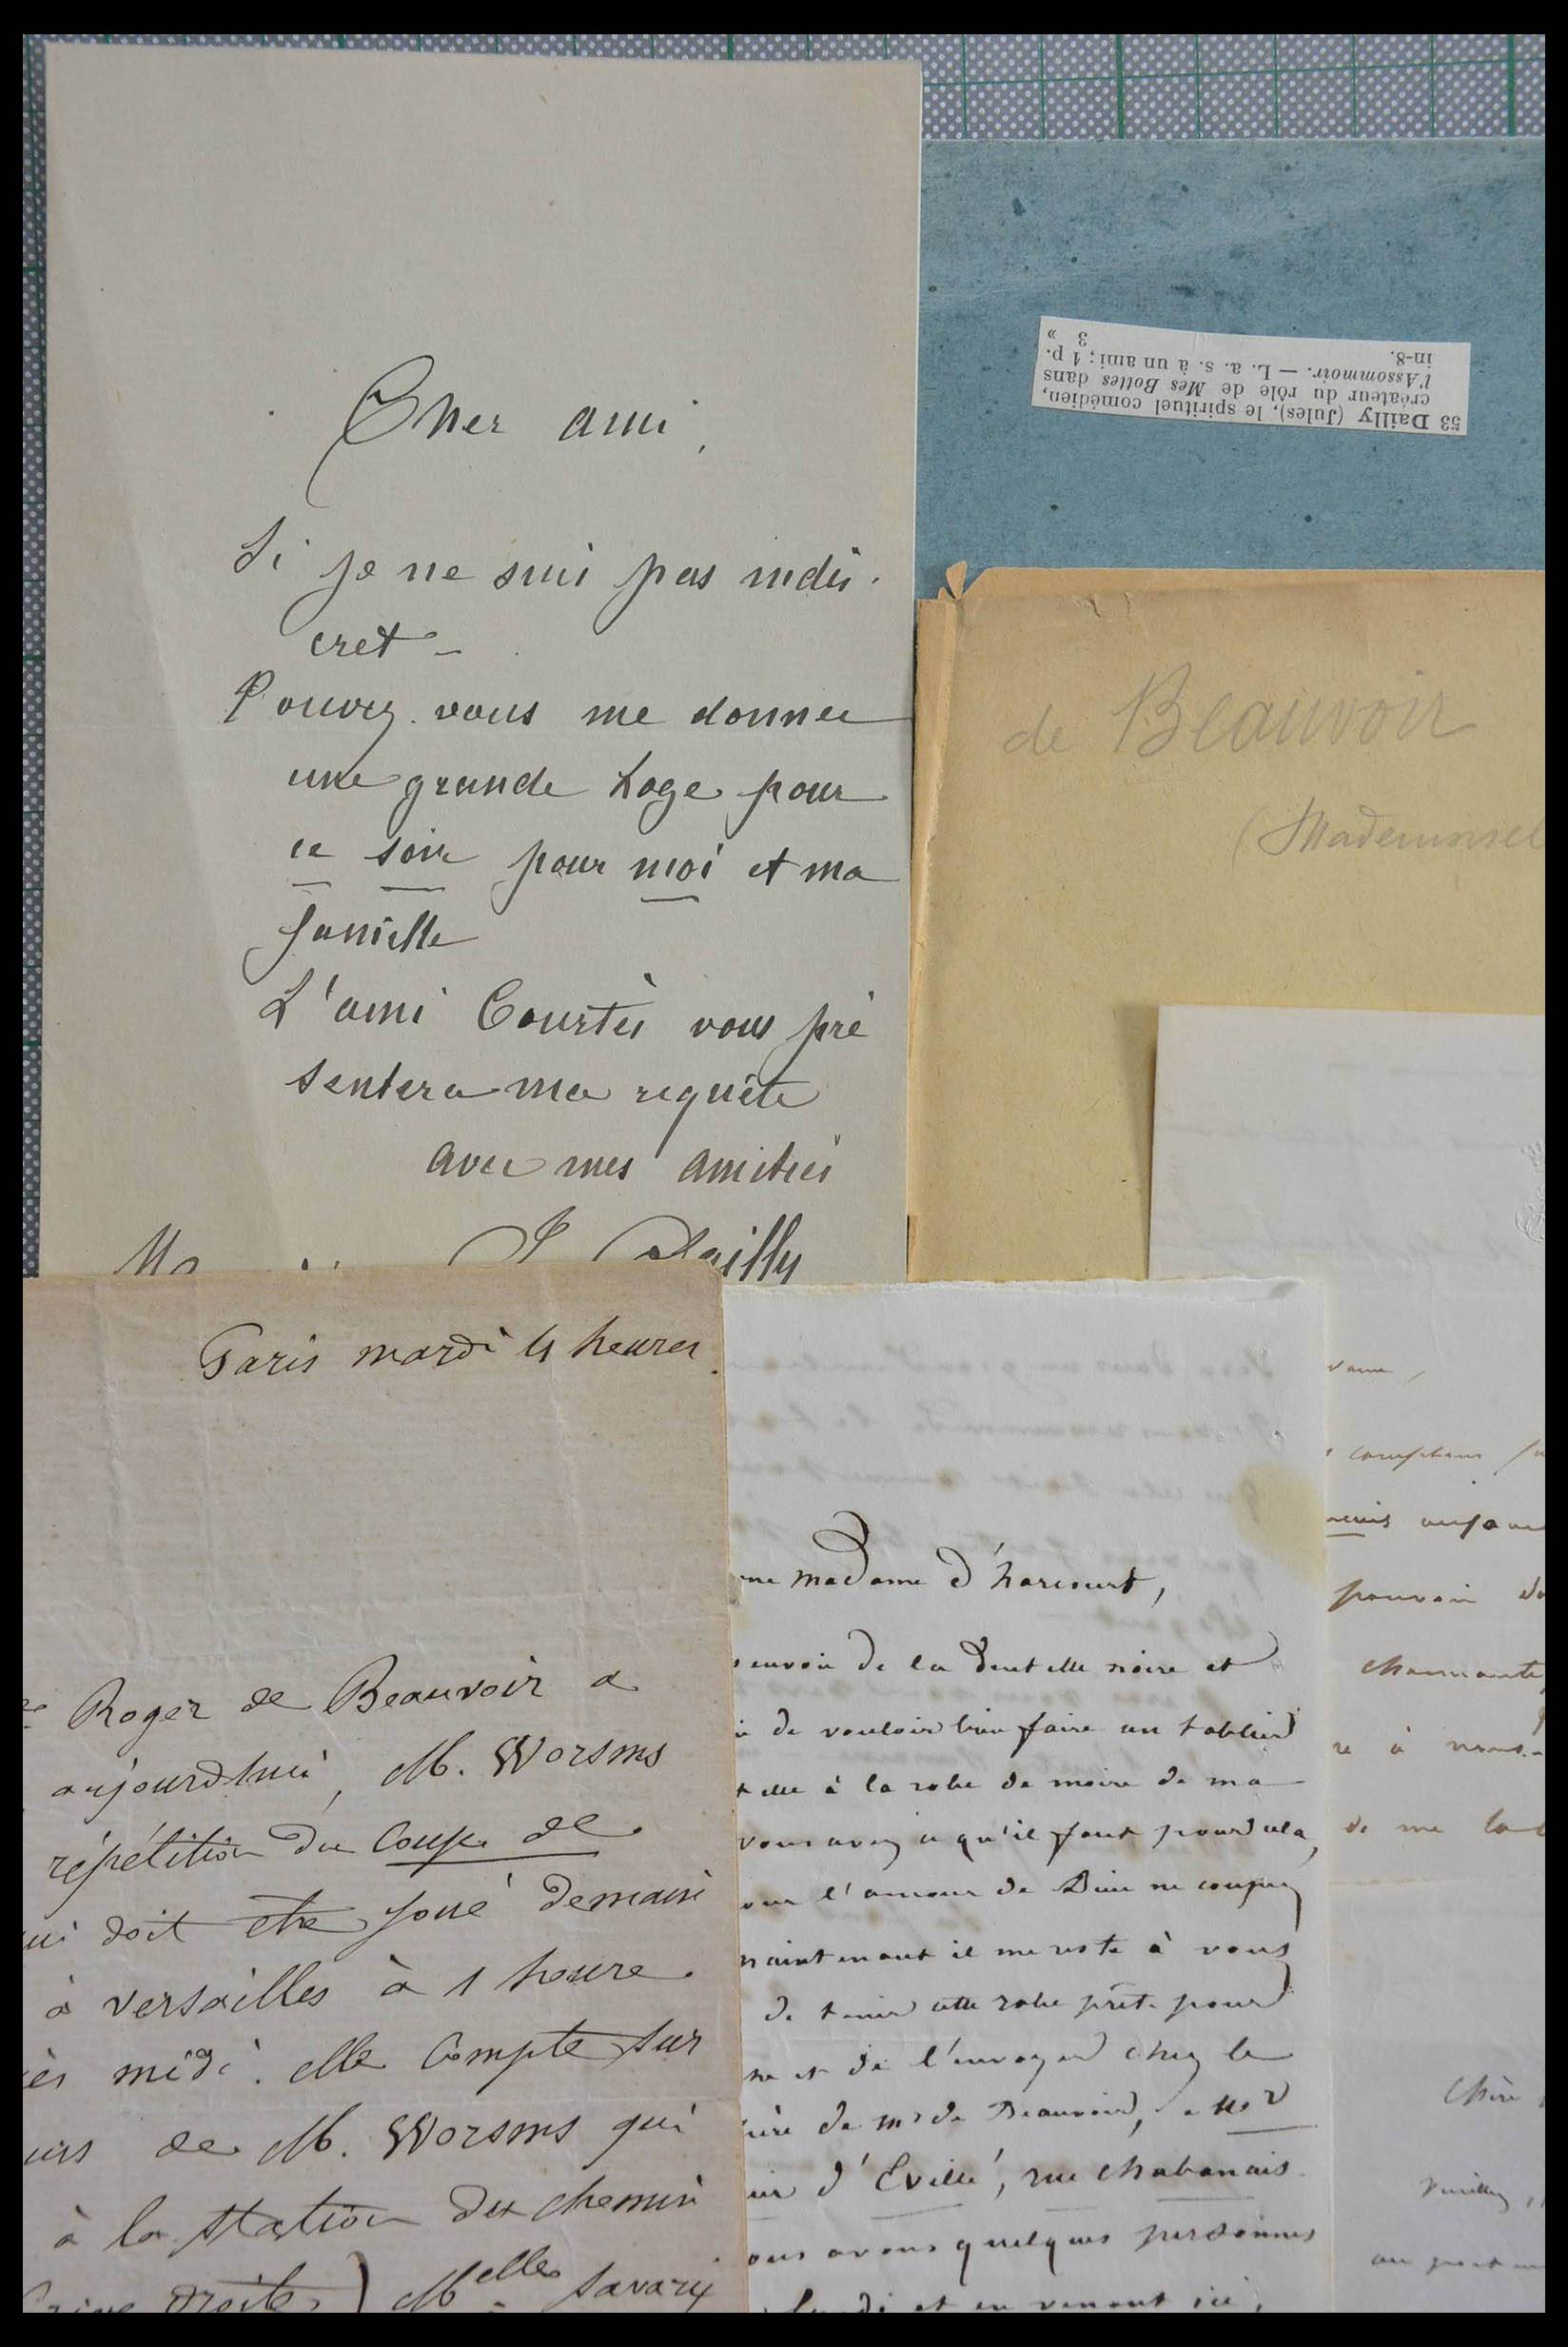 Cher ami,
Si je ne suis pas indis-
cret -
Pouvez-vous me donner
une grande Loge pour
ce soir pour moi et ma
famille
L'ami Courtès vous pré
sentera ma requête
avec mes amitiés
J Dailly
53 Dailly (Jules), le spirituel comédien,
créateur du rôle de Mes Bottes dans
l'Assommoir. — L. a. s. à un ami; 1 p.
in-8. 3 »
de Beauvoir
(Mademoisel
Paris mardi 4 heures.
Roger de Beauvoir a
aujourdhui, M. Worsms
répétition du Coup de
ui doit etre joué demain
à versailles à 1 heure
ès midi. elle Compte sur
urs de M. Worsms qui
à la station du chemin
rive droite) Melle Savary
me Madame d'harcourt,
envoie de la Dentelle noire et
de vouloir bien faire un tablier
telle à la robe de moire de ma
vous avez ce qu'il faut pour cela,
our l'amour de Dieu ne coupez
maintenant il me reste à vous
de tenir cette robe prête pour
ne et de l'envoyer chez le
de mr de Beauvoir,
d'Eville, rue chabanais
ous avons quelques personnes
lundi et en venant ici,
comptions
pouvoir
charmante
re à vous
de me
Chère
Veuillez
au